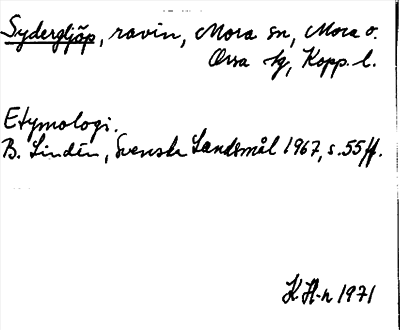 Sydergljöp, ravin, Mora sn, Mora o.
Orsa tg, Kopp. l.
Etymologi.
B. Lindén, Svenska Landsmål 1967, s. 55 ff.
K H-n 1971